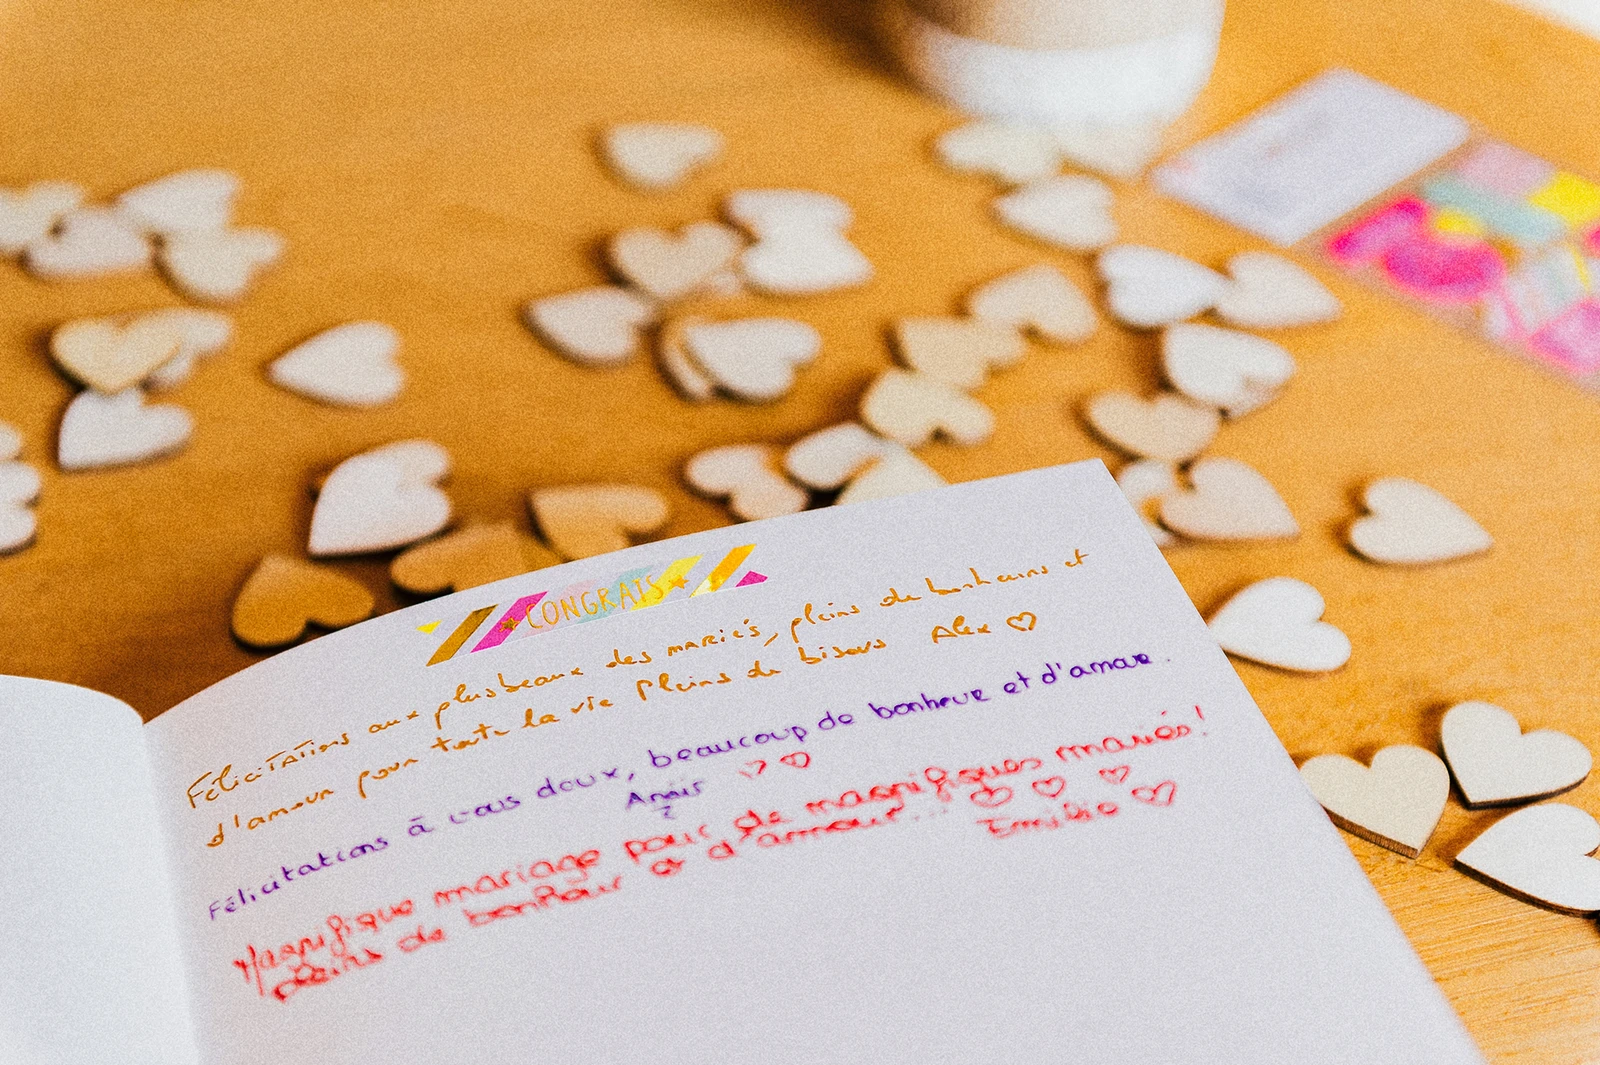 CONGRATS
Félicitations aux plus beaux des mariés, pleins de bonheurs et
d'amour pour toute la vie Pleins de bisous Alex
Félicitations à vous deux, beaucoup de bonheur et d'amour.
Anaïs
Magnifique mariage pour de magnifiques mariés!
pleins de bonheur et d'amour...
Emilie